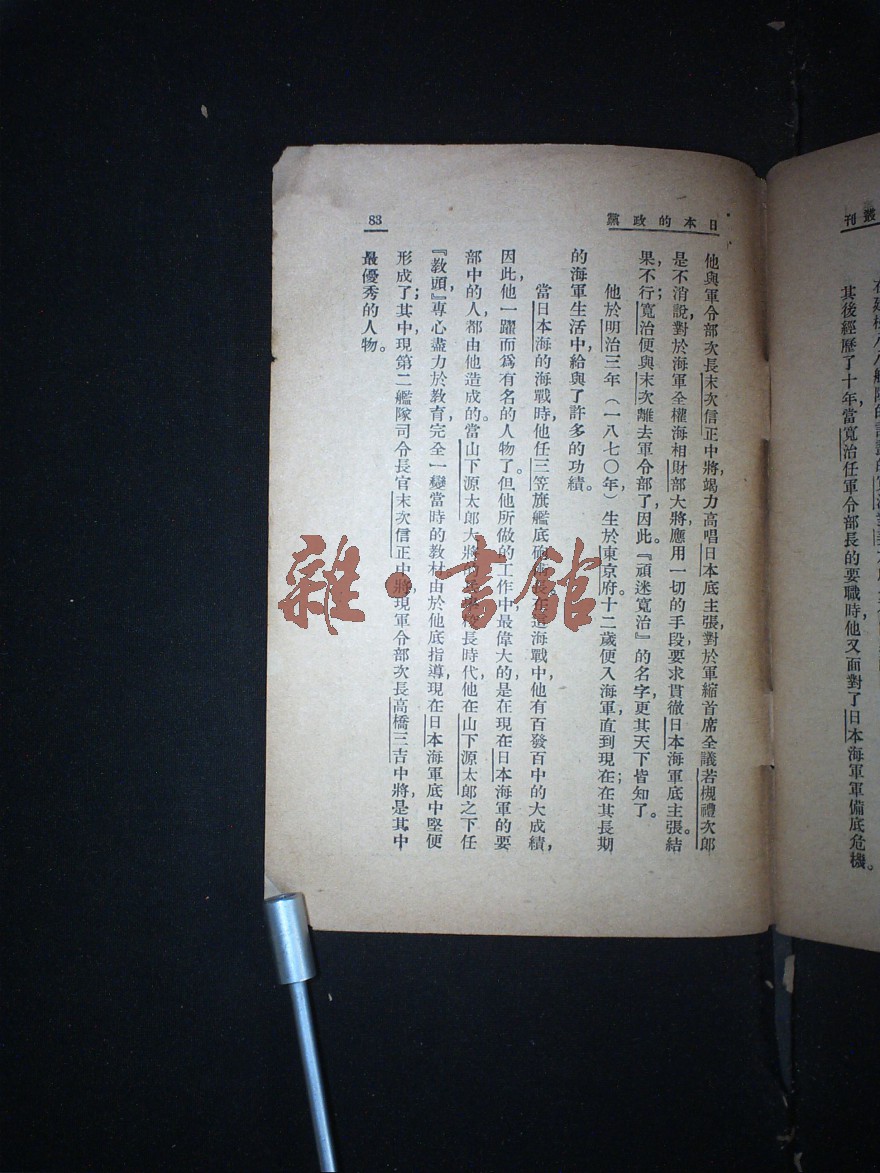 叢刊
其後經歷了十年，當寬治任軍令部長的要職時，他又面對了日本海軍軍備底危機。
日本的政黨
83
他與軍令部次長末次信正中將，竭力高唱日本底主張，對於軍縮首席全議若槻禮次郎
是不消說，對於海軍全權海相財部大將，應用一切的手段要求貫徹日本海軍底主張。結
果不行；寬治便與末次離去軍令部了，因此。『頑迷寬治』的名字，更其天下皆知了。
他於明治三年（一八七〇年），生於東京府。十二歲便入海軍，直到現在；在其長期
的海軍生活中，給與了許多的功績。
當日本海的海戰時，他任三笠旗艦底砲海戰中，他有百發百中的大成績，
因此，他一躍而爲有名的人物了。但他所做的工作中，最偉大的，是在現在日本海軍的要
部中的人，都由他造成的。當山下源太郎大將長時代，他在山下源太郎之下任
『教頭』，專心盡力於教育，完全一變當時的教材，由於他底指導，現在日本海軍底中堅便
形成了；其中，現第二艦隊司令長官末次信正中將，現軍令部次長高橋三吉中將，是其中
最優秀的人物。
雜·書館